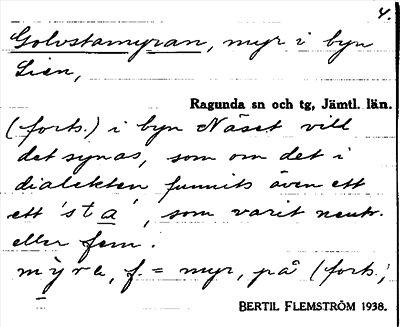 4.
Golvstamyran, myr i byn
Lien,
Ragunda sn och tg, Jämtl. län.
(forts.) i byn Näset vill
det synas, som om det i
dialekten funnits även ett
ett 'sta', som varit neutr.
eller fem.
mỳra, f. = myr, på (forts.)
BERTIL FLEMSTRÖM 1938.